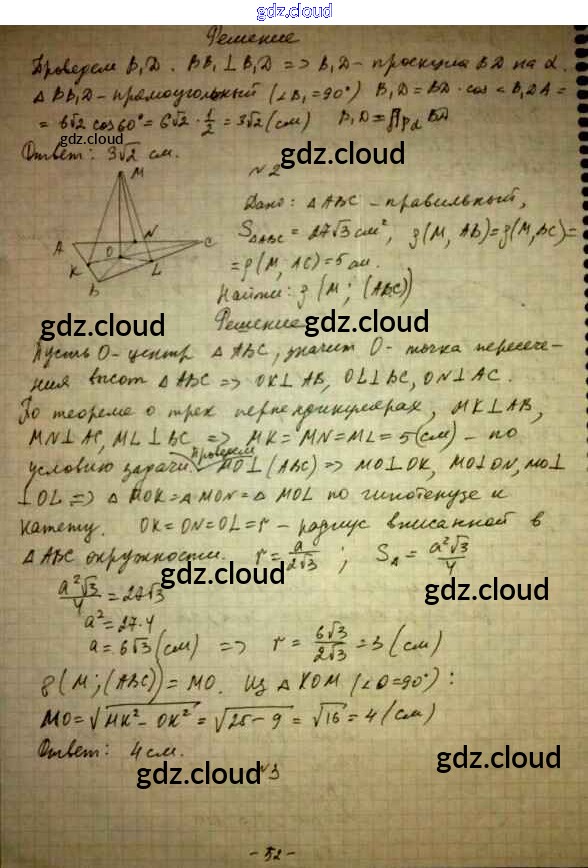 gdz.cloud
Решение
Проведем B₁D. BB₁⊥B₁D => B₁D - проекция BD на α.
△BB₁D - прямоугольный (∠B₁=90°) B₁D = BD · cos ∠B₁DA =
= 6√2 cos60° = 6√2 · 1/2 = 3√2 (см) B₁D = Пр_α BD
gdz.cloud
Ответ: 3√2 см.
gdz.cloud
N 2
M
Дано: △ABC - правильный,
S△ABC = 27√3 см², ρ(M, AB)=ρ(M,BC)=
A N C
K O L
B
= ρ(M; AC) = 5 см.
Найти: ρ(M; (ABC))
gdz.cloud
Решение
gdz.cloud
Пусть O - центр △ABC, значит O - точка пересече-
ния высот △ABC => OK⊥AB, OL⊥BC, ON⊥AC.
По теореме о трех перпендикулярах, MK⊥AB,
MN⊥AC, ML⊥BC => MK = MN = ML = 5(см) - по
Проведем
условию задачи. MO⊥(ABC) => MO⊥OK, MO⊥ON, MO⊥
⊥OL => △MOK = △MON = △MOL по гипотенузе и
катету. OK = ON = OL = r - радиус вписанной в
△ABC окружности. r = a/2√3 ; S△ = a²√3/4
gdz.cloud
gdz.cloud
a²√3/4 = 27√3
a² = 27·4
a = 6√3 (см) => r = 6√3/2√3 = 3 (см)
gdz.cloud
ρ(M; (ABC)) = MO. Из △KOM (∠O=90°):
MO = √MK² - OK² = √25 - 9 = √16 = 4 (см)
Ответ: 4 см.
gdz.cloud
gdz.cloud
N3
- 52 -